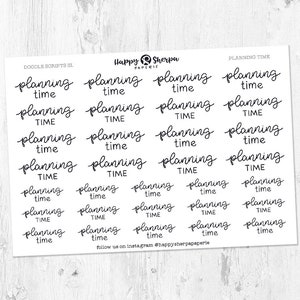 DOODLE SCRIPTS
Happy Sherpa
PAPERIE
PLANNING TIME
planning planning planning planning
time time time time
planning planning planning planning
TIME TIME TIME TIME
planning planning planning planning
time time time time
planning planning planning planning
TIME TIME TIME TIME
planning planning planning planning planning
time time time time time
planning planning planning planning planning
TIME TIME TIME TIME TIME
planning planning planning planning planning
time time time time time
follow us on instagram @happysherpapaperie